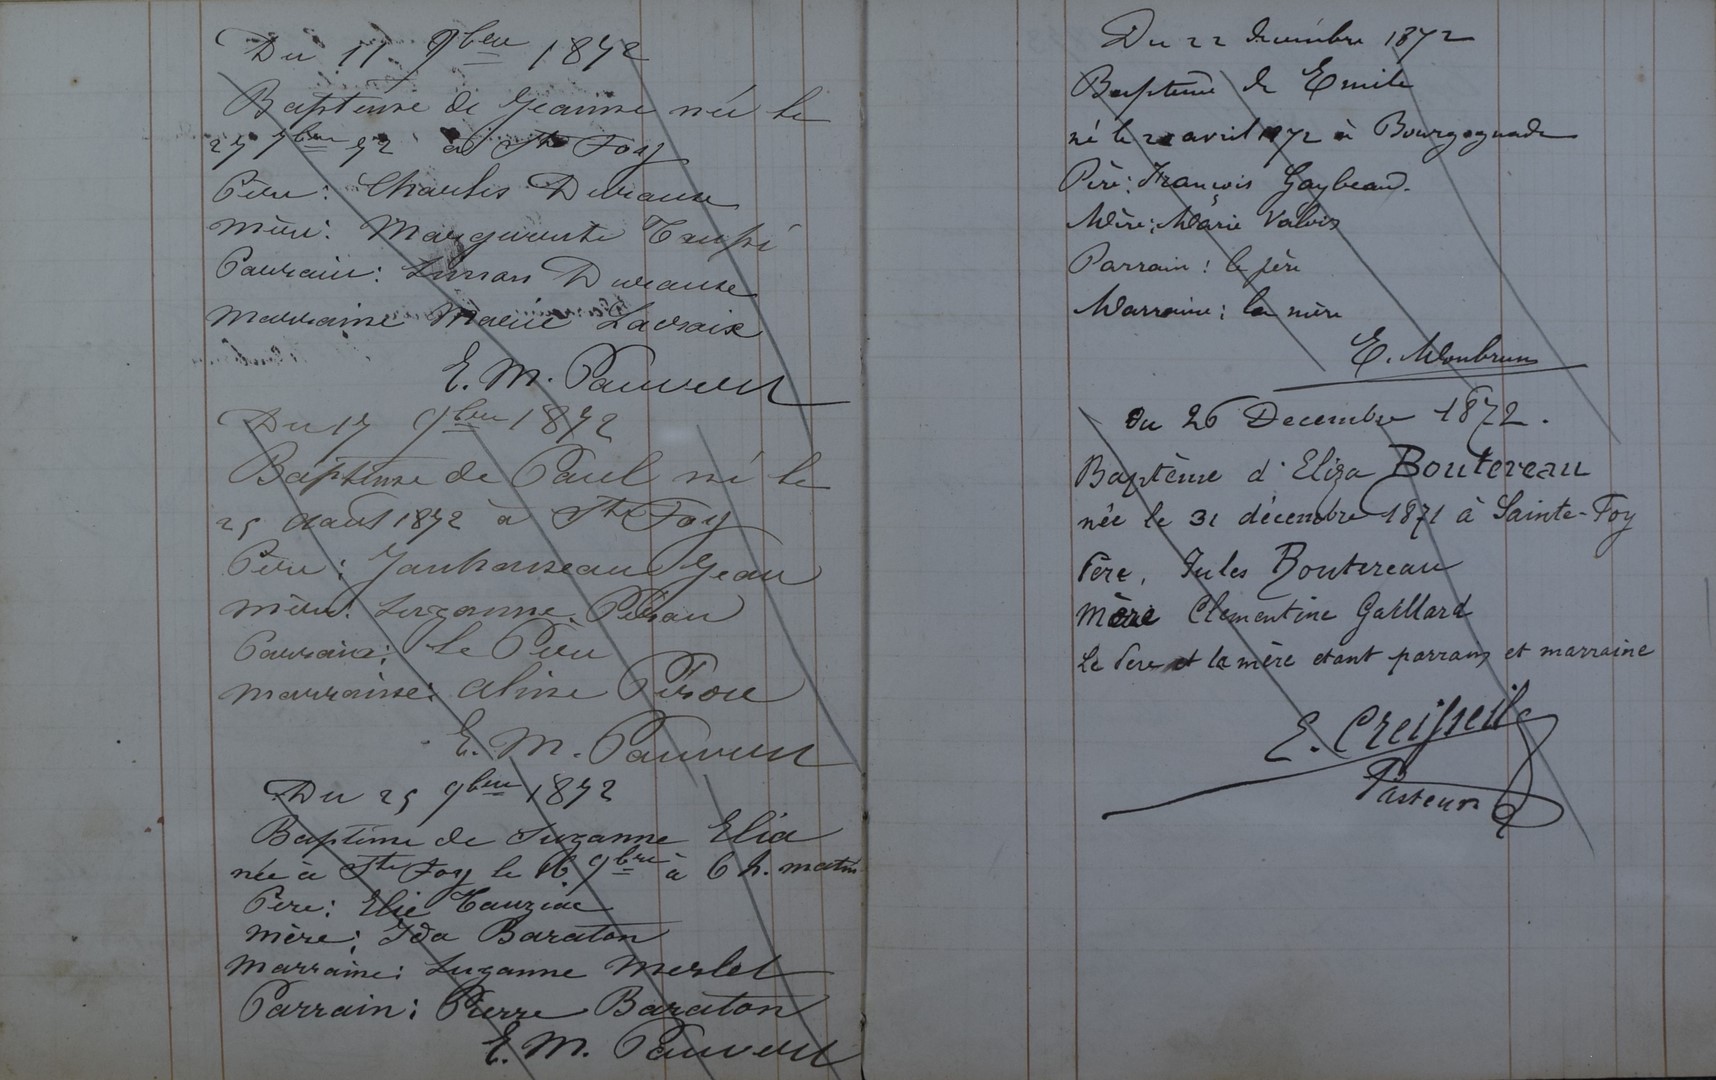 Du 17 9bre 1872
Baptême de Jeanne née le
27 7bre 72 à Ste Foy
Père: Charles
mère: Marguerite
Parrain: Simon
marraine Marie Lacroix
E. M. Pauvert
Du 17 9bre 1872
Baptême de Paul né le
25 Août 1872 à Ste Foy
Père: Jean
mère: Suzanne
Parrain: le Père
marraine: Aline
E. M. Pauvert
Du 25 9bre 1872
Baptême de Suzanne Elia
née à Ste Foy le 16 9bre à 6 h. matin
Père: Elie Tauziac
mère: Ida Baraton
marraine: Suzanne Merlet
Parrain: Pierre Baraton
E. M. Pauvert
Du 22 décembre 1872
Baptême de Emile
né le avril 1872 à Bourgognade
Père: François Gaybeaud.
Mère: Marie Valois
Parrain: le père
Marraine: la mère
E. Monbrun
Du 26 Decembre 1872.
Baptême d'Eliza Boutereau
née le 31 décembre 1871 à Sainte-Foy
Père, Jules Boutereau
Mère Clementine Gaillard
Le Pere et la mère etant parrain et marraine
E. Creisseil
Pasteur